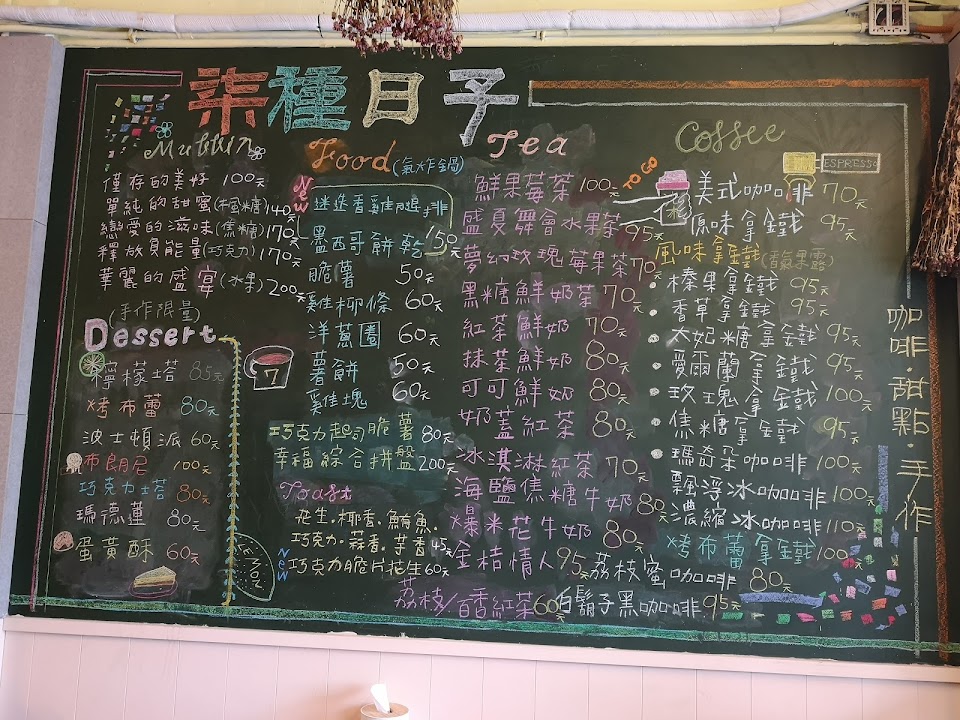 柒種日子
Muffin
僅存的美好 100元
單純的甜蜜(楓糖) 140元
戀愛的滋味(焦糖) 170元
釋放負能量(巧克力) 170元
華麗的盛宴(水果) 200元
(手作限量)
Dessert
檸檬塔 85元
烤布蕾 80元
波士頓派 60元
布朗尼 100元
巧克力塔 80元
瑪德蓮 80元
蛋黃酥 60元
Food(氣炸鍋)
New
迷迭香雞腿排 150元
墨西哥餅乾
脆薯 50元
雞柳條 60元
洋蔥圈 60元
薯餅 50元
雞塊 60元
7
巧克力起司脆薯 80元
幸福綜合拼盤 200元
Toast
花生·椰香·鮪魚·
巧克力·蒜香·芋香 45元
New
巧克力脆片花生 60元
Tea
鮮果莓茶 100元
盛夏舞會水果茶 95元
夢幻玫瑰莓果茶 70元
黑糖鮮奶茶 70元
紅茶鮮奶 70元
抹茶鮮奶 80元
可可鮮奶 80元
奶蓋紅茶 80元
冰淇淋紅茶 70元
海鹽焦糖牛奶 80元
爆米花牛奶 80元
金桔情人 95元
荔枝/百香紅茶 60元
TO GO
柒
Coffee
ESPRESSO
美式咖啡 70元
原味拿鐵 95元
風味拿鐵(香氣果露)
榛果拿鐵 95元
香草拿鐵 95元
太妃糖拿鐵 95元
愛爾蘭拿鐵 95元
玫瑰拿鐵 100元
焦糖拿鐵 95元
瑪奇朵咖啡 100元
飄浮冰咖啡 100元
濃縮冰咖啡 110元
烤布蕾拿鐵 100元
荔枝蜜咖啡 80元
白鬍子黑咖啡 95元
咖啡·甜點·手作